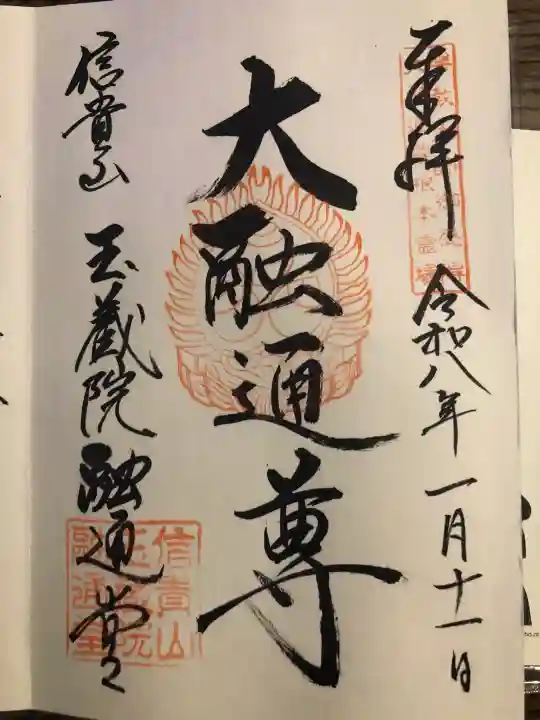 奉拝 令和八年一月十一日
大融通尊
信貴山 玉蔵院 融通堂
信貴山
玉蔵院
融通堂